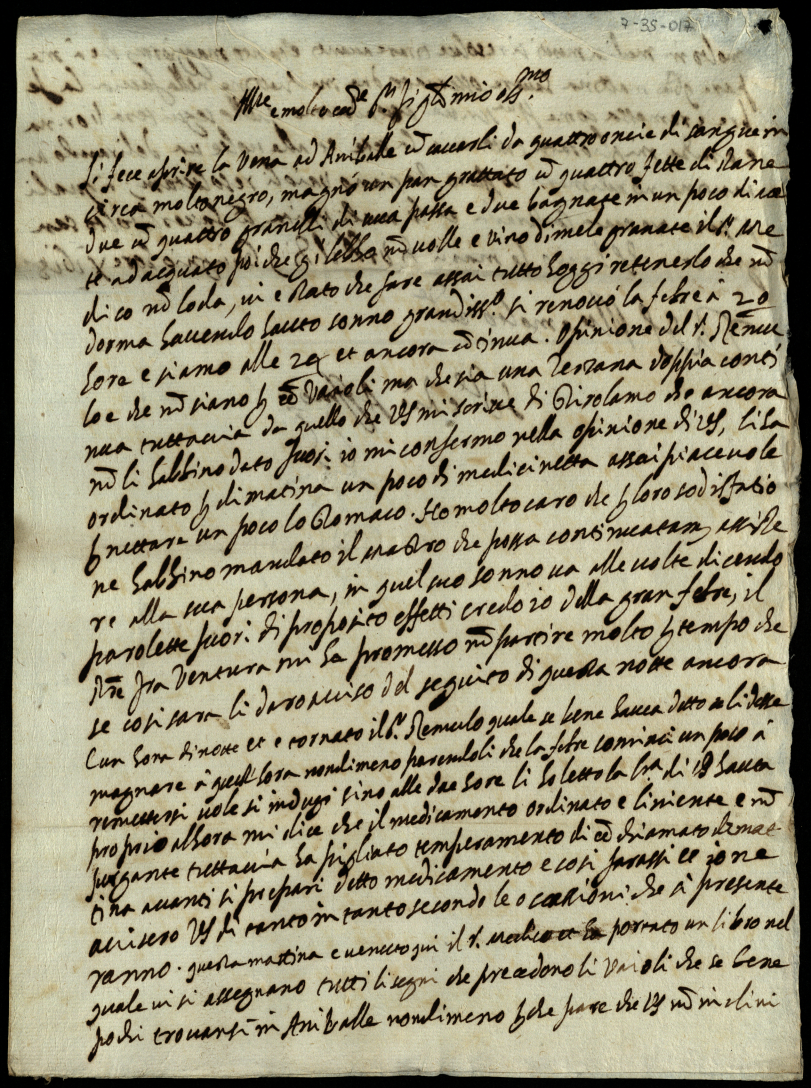 7-35-017
Ill.re e molto ecc.te S.r sig.r mio oss.mo
Si fece aprire la vena ad Anibale cō cavarli da quattro oncie di sangue in
circa molto negro, magnò un pan grattato cō quattro fette di Rane
due cō quattro granelli di uva passa e due bagnate in un poco di ace
to ad acquato poi che il lesso nō volle e vino di mele granate il S.r Me
dico nō loda, vi e stato che fare assai tutto hoggi retenerlo che nō
dorma havendo hauto sonno grandiss.o si renovò la febre à 20
hore e siamo alle 24 et ancora cōtinua. Opinione del S.r Remu
lo e che nō siano p cō Vaioli ma che sia una Terzana doppia conti
nua tuttavia da quello che VS mi scrive di Girolamo che ancora
nō li habbino dato fuori io mi confermo nella opinione di VS, li ha
ordinato p dimatina un poco di medicinetta assai piacevole
p nettare un poco lo stomaco. Ho molto caro che p loro sodisfatio
ne habbino mandato il Mastro che possa continuatam. assiste
re alla sua persona, in quel suo sonno va alle volte dicendo
parolette fuori di proposito effetti credo io della gran febre, il
Rde fra Ventura mi ha promesso nō partire molto p tempo che
se cosi sara li daro aviso del seguito di questa notte ancora
E un hora di notte et e tornato il S.r Remulo quale se bene haveva detto se li desse
magnare à quest hora nondimeno parendoli che la febre cominci un poco à
remettersi vole si indugi sino alle due hore li ho letto la l.ra di VS hauta
proprio alhora mi dice che il medicamento ordinato e liniente e nō
purgante tuttavia ha pigliato temperamento di cō chiamato dimat
tina avanti si prepari detto medicamento e cosi farassi et io ne
avisero VS di tanto in tanto secondo le occasioni che si presente
ranno. questa mattina e venuto qui il S.r Medico et ha portato un libro nel
quale vi si assegnano tutti li segni che precedono li Vaioli che se bene
pochi trovansi in Aniballe nondimeno p che pare che VS nō inclini